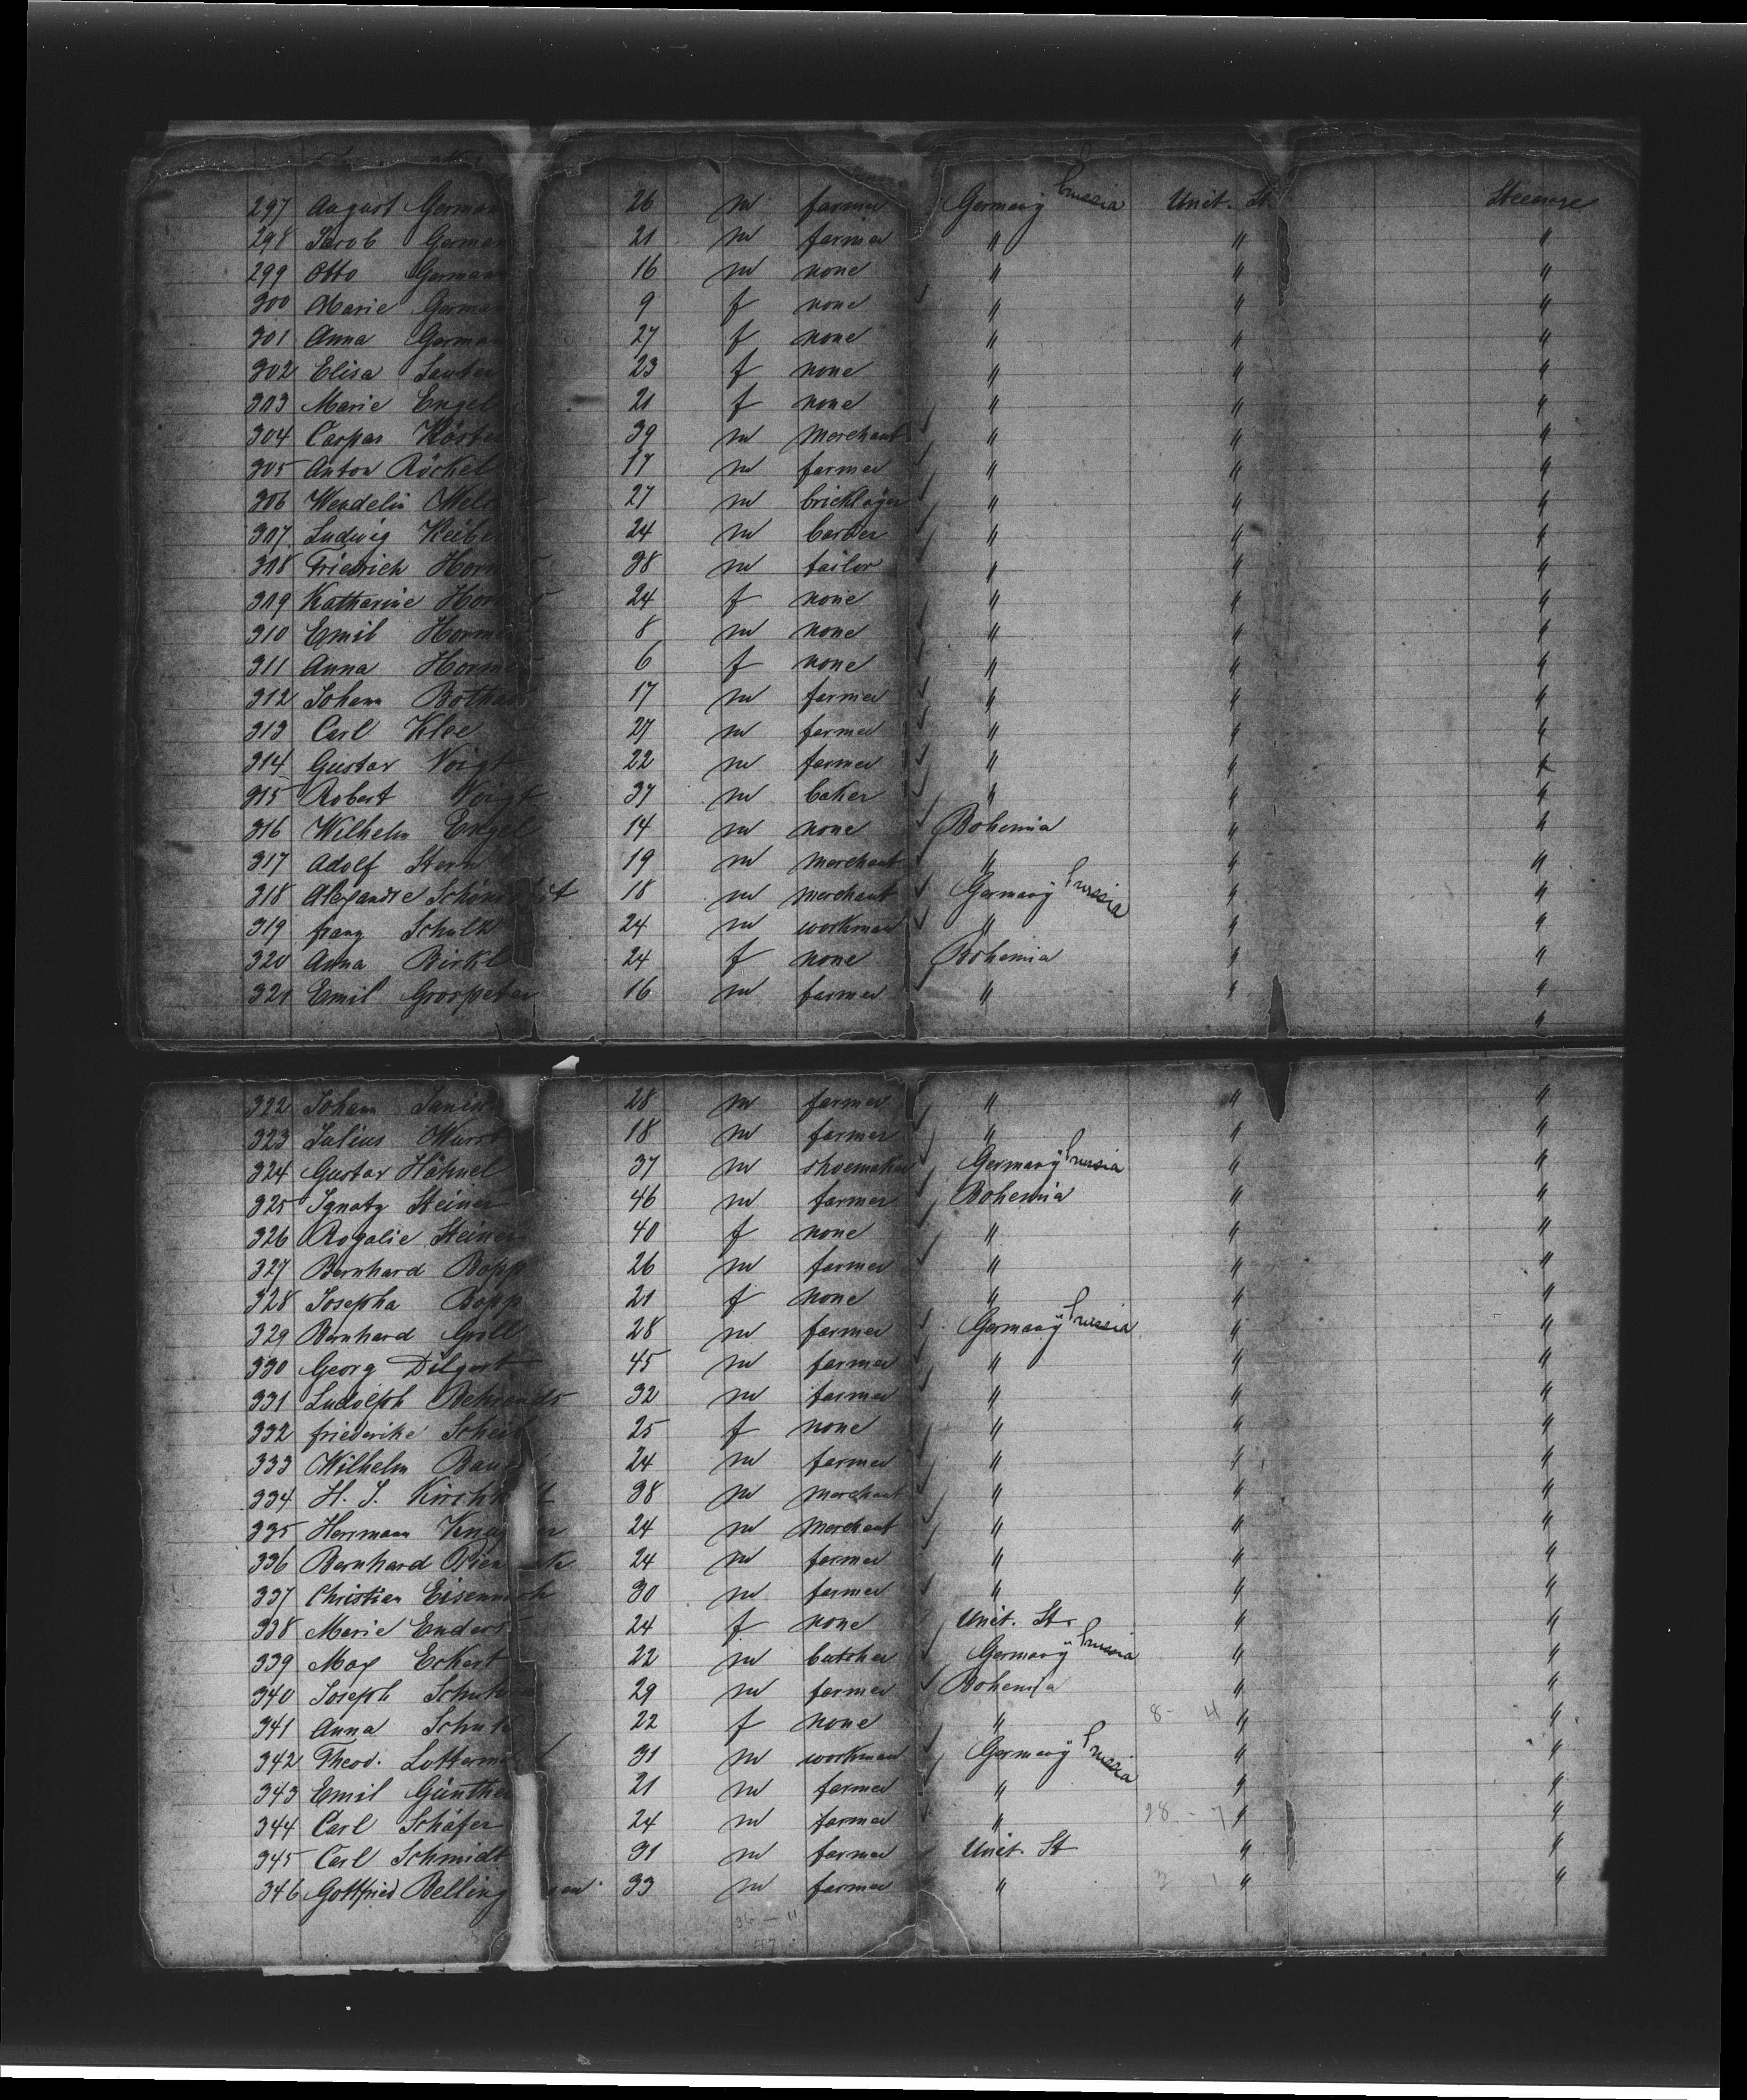 297 August German 26 m farmer Germany Prussia Unit. St. Steerage
298 Jacob German 21 m farmer " " "
299 Otto German 16 m none " " "
300 Marie German 9 f none " " "
301 Anna German 27 f none " " "
302 Elisa Sauter 23 f none " " "
303 Marie Engel 21 f none " " "
304 Caspar Köster 39 m merchant " " "
305 Anton Röckel 17 m farmer " " "
306 Wendelin 27 m bricklayer " " "
307 Ludwig 24 m barber " " "
308 Friedrich 38 m tailor " " "
309 Katharine 24 f none " " "
310 Emil 8 m none " " "
311 Anna 6 f none " " "
312 Johann 17 m farmer " " "
313 Carl Klee 27 m farmer " " "
314 Gustav Voigt 22 m farmer " " "
315 Robert Voigt 37 m baker " " "
316 Wilhelm Engel 14 m none Bohemia " "
317 Adolf Stern 19 m merchant " " "
318 Alexandre 18 m merchant Germany Prussia " "
319 franz Schultz 24 m workman " " "
320 Anna Birkl 24 f none Bohemia " "
321 Emil Grospeter 16 m farmer " " "
"
322 Johann 28 m farmer " " "
323 Julius Wurst 18 m farmer " " "
324 Gustav Hähnel 37 m shoemaker Germany Prussia " "
325 Ignatz Steiner 46 m farmer Bohemia " "
326 Rozalie Steiner 40 f none " " "
327 Bernhard Bopp 26 m farmer " " "
328 Josepha Bopp 21 f none " " "
329 Bernhard Groll 28 m farmer Germany Prussia " "
330 Georg Dilgert 45 m farmer " " "
331 Ludolph Behrends 32 m farmer " " "
332 friederike 25 f none " " "
333 Wilhelm 24 m farmer " " "
334 H. J. 38 m merchant " " "
335 Herrmann 24 m merchant " " "
336 Bernhard 24 m farmer " " "
337 Christian 30 m farmer " " "
338 Marie Enders 24 f none Unit. St. " "
339 Max Eckert 22 m butcher Germany Prussia " "
340 Joseph 29 m farmer Bohemia " "
341 Anna 22 f none " 8 - 4 " "
342 Theod. 31 m workman Germany Prussia " "
343 Emil Günther 21 m farmer " " "
344 Carl Schäfer 24 m farmer " 28 - 7 " "
345 Carl Schmidt 31 m farmer Unit. St " "
346 Gottfried 33 m farmer " " "
36 - 11
47